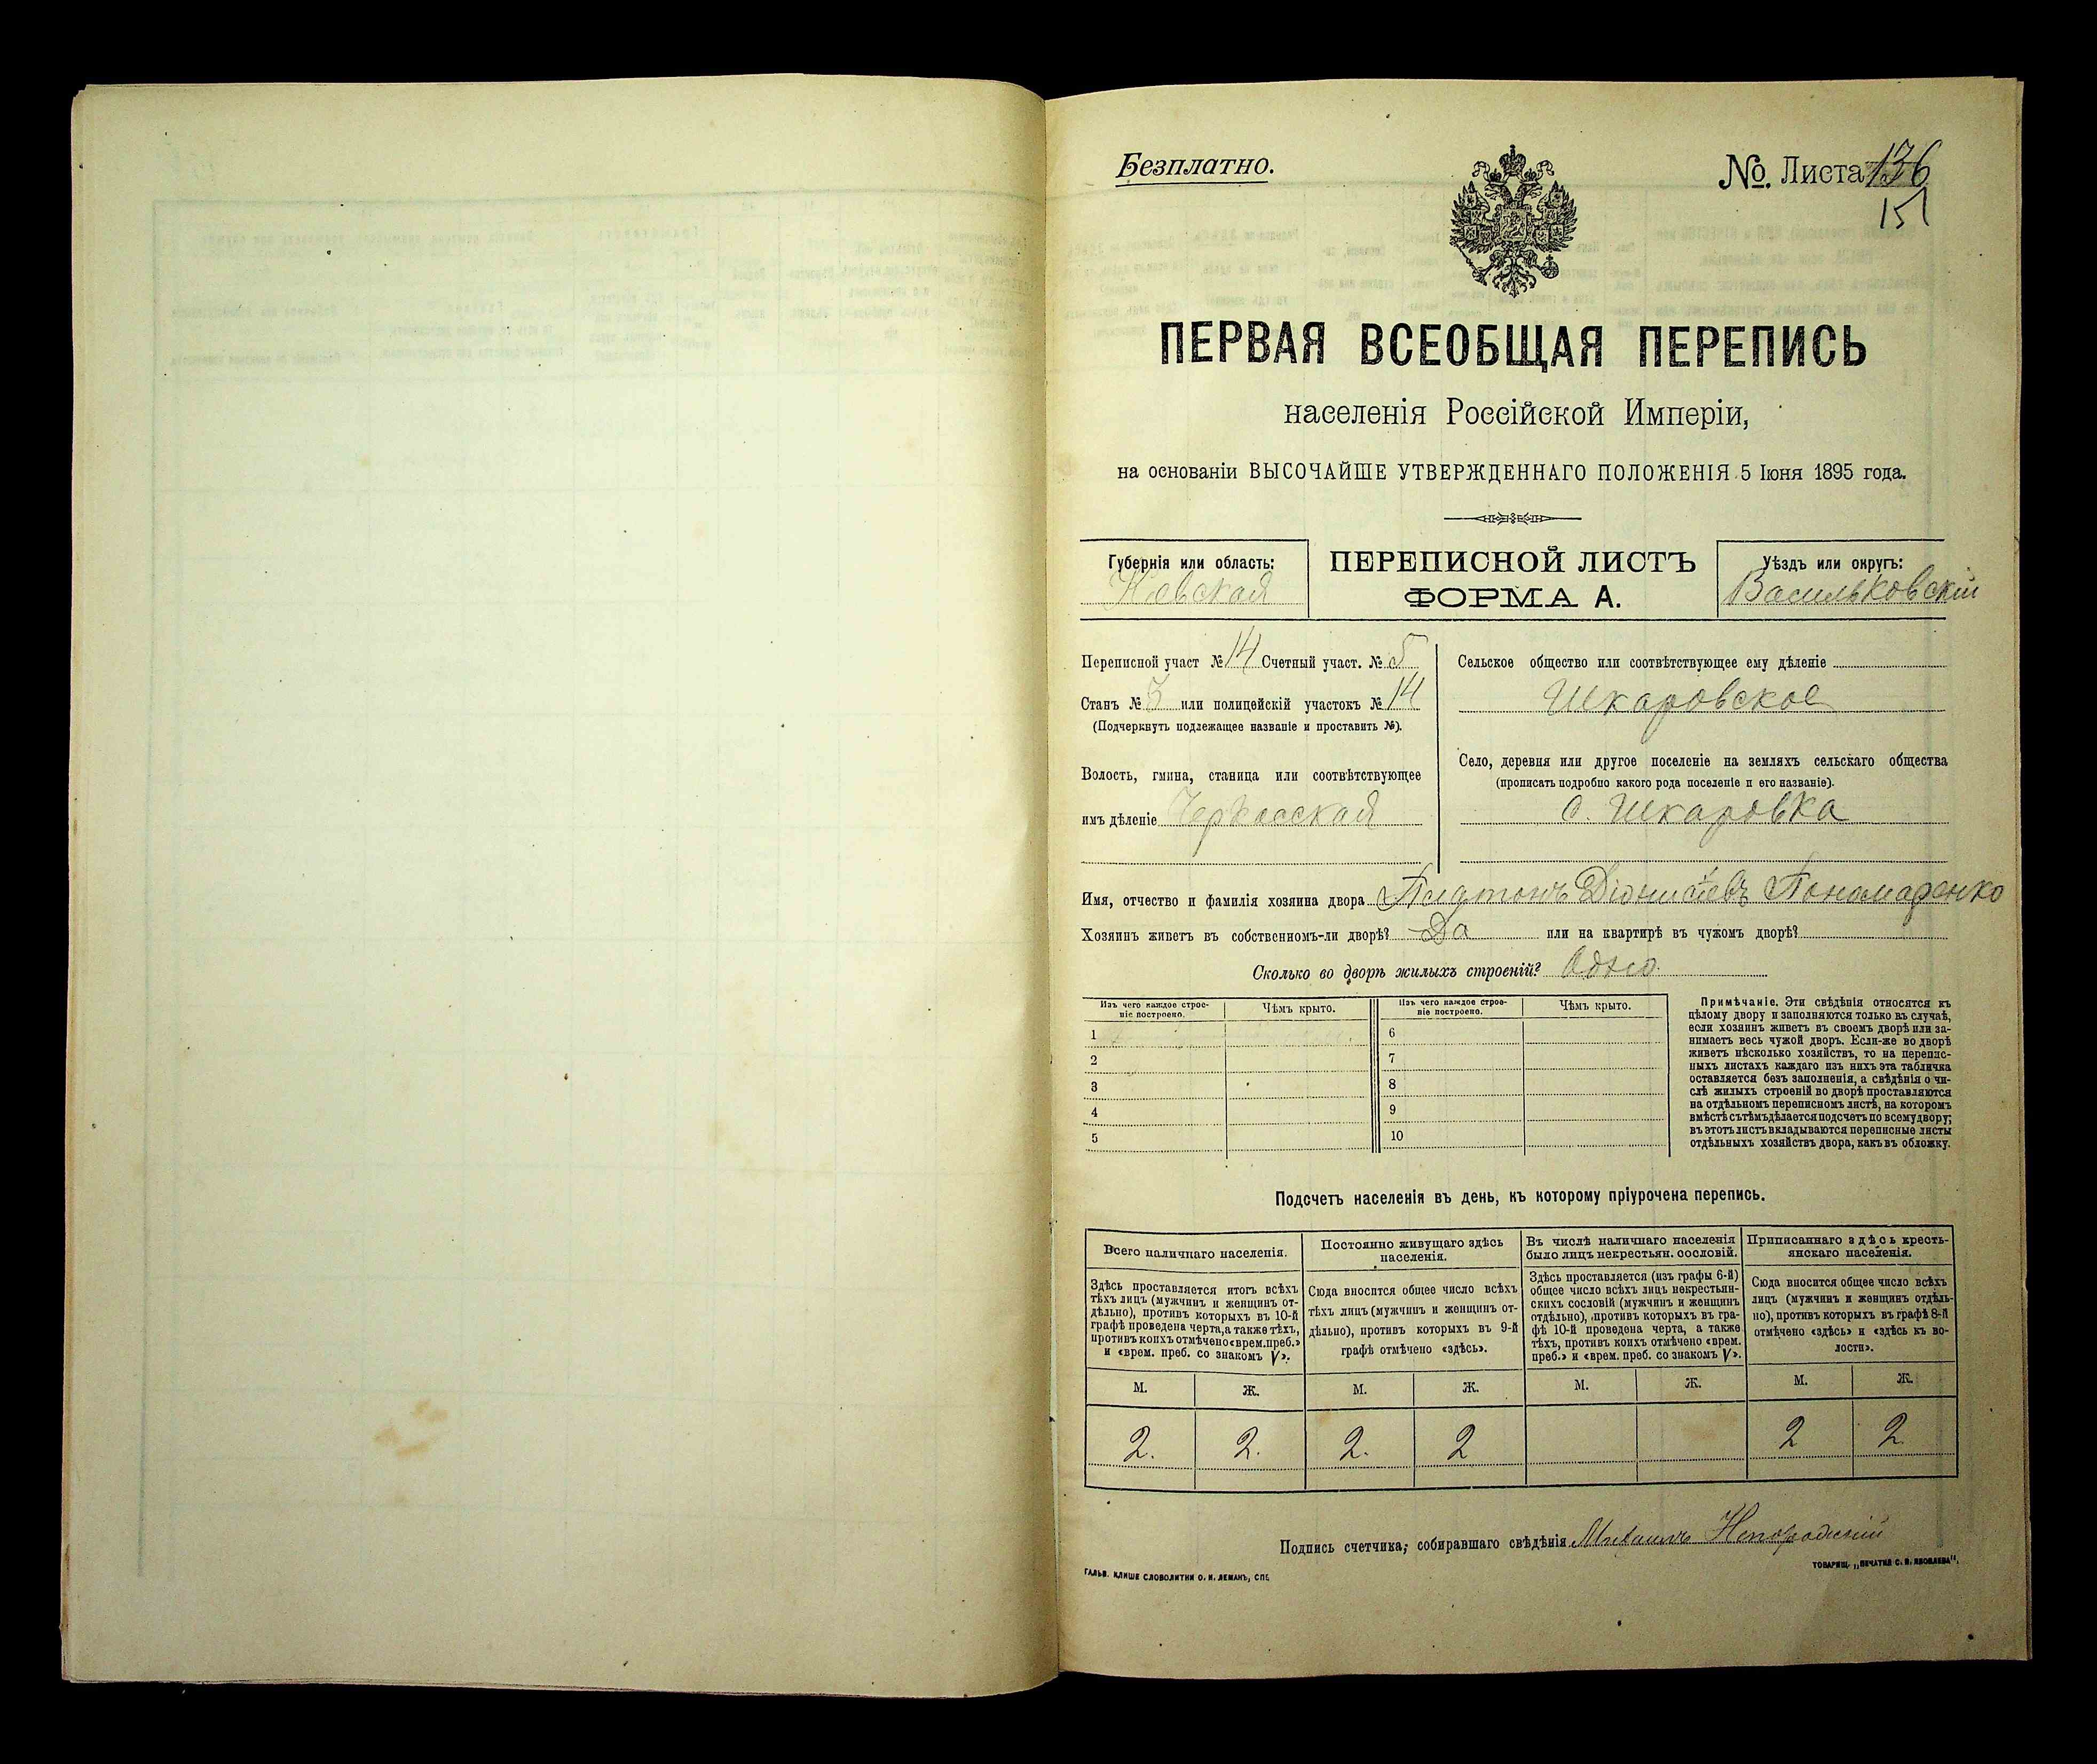 Безплатно.
№. Листа 136
151
ПЕРВАЯ ВСЕОБЩАЯ ПЕРЕПИСЬ
населенія Россійской Имперіи,
на основаніи ВЫСОЧАЙШЕ УТВЕРЖДЕННАГО ПОЛОЖЕНІЯ 5 Іюня 1895 года.
Губернія или область:
Кіевская
ПЕРЕПИСНОЙ ЛИСТЪ
ФОРМА А.
Уѣздъ или округъ:
Васильковскій
Переписной участ № 14 Счетный участ. № 5
Станъ № 3 или полицейскій участокъ № 14
(Подчеркнуть подлежащее названіе и проставить №).
Волость, гмина, станица или соотвѣтствующее
имъ дѣленіе Черкасская
Сельское общество или соотвѣтствующее ему дѣленіе
Шкаровское
Село, деревня или другое поселеніе на земляхъ сельскаго общества
(прописать подробно какого рода поселеніе и его названіе).
с. Шкаровка
Имя, отчество и фамилія хозяина двора Платонъ Діонисіевъ Понамаренко
Хозяинъ живетъ въ собственномъ-ли дворѣ? Да или на квартирѣ въ чужомъ дворѣ?
Сколько во дворѣ жилыхъ строеній? Одно.
Изъ чего каждое строе-
ніе построено.
Чѣмъ крыто.
Изъ чего каждое строе-
ніе построено.
Чѣмъ крыто.
1
2
3
4
5
6
7
8
9
10
Примѣчаніе. Эти свѣдѣнія относятся къ
цѣлому двору и заполняются только въ случаѣ,
если хозяинъ живетъ въ своемъ дворѣ или за-
нимаетъ весь чужой дворъ. Если-же во дворѣ
живетъ нѣсколько хозяйствъ, то на перепис-
ныхъ листахъ каждаго изъ нихъ эта табличка
оставляется безъ заполненія, а свѣдѣнія о чи-
слѣ жилыхъ строеній во дворѣ проставляются
на отдѣльномъ переписномъ листѣ, на которомъ
вмѣстѣ съ тѣмъ дѣлается подсчетъ по всему двору;
въ этотъ листъ вкладываются переписные листы
отдѣльныхъ хозяйствъ двора, какъ въ обложку.
Подсчетъ населенія въ день, къ которому пріурочена перепись.
Всего наличнаго населенія.
Здѣсь проставляется итогъ всѣхъ
тѣхъ лицъ (мужчинъ и женщинъ от-
дѣльно), противъ которыхъ въ 10-й
графѣ проведена черта, а также тѣхъ,
противъ коихъ отмѣчено «врем. преб.»
и «врем. преб. со знакомъ V».
Постоянно живущаго здѣсь
населенія.
Сюда вносится общее число всѣхъ
тѣхъ лицъ (мужчинъ и женщинъ от-
дѣльно), противъ которыхъ въ 9-й
графѣ отмѣчено «здѣсь».
Въ числѣ наличнаго населенія
было лицъ некрестьян. сословій.
Здѣсь проставляется (изъ графы 6-й)
общее число всѣхъ лицъ некрестьян-
скихъ сословій (мужчинъ и женщинъ
отдѣльно), противъ которыхъ въ гра-
фѣ 10-й проведена черта, а также
тѣхъ, противъ коихъ отмѣчено «врем.
преб.» и «врем. преб. со знакомъ V».
Приписаннаго здѣсь кресть-
янскаго населенія.
Сюда вносится общее число всѣхъ
лицъ (мужчинъ и женщинъ отдѣль-
но), противъ которыхъ въ графѣ 8-й
отмѣчено «здѣсь» и «здѣсь къ во-
лости».
М. Ж. М. Ж. М. Ж. М. Ж.
2. 2. 2. 2 2 2
Подпись счетчика, собиравшаго свѣдѣнія Михаилъ
ГАЛЬВ. КЛИШЕ СЛОВОЛИТНИ О. И. ЛЕМАНЪ, СПБ
ТОВАРИЩ. „ПЕЧАТНЯ С. П. ЯКОВЛЕВА".